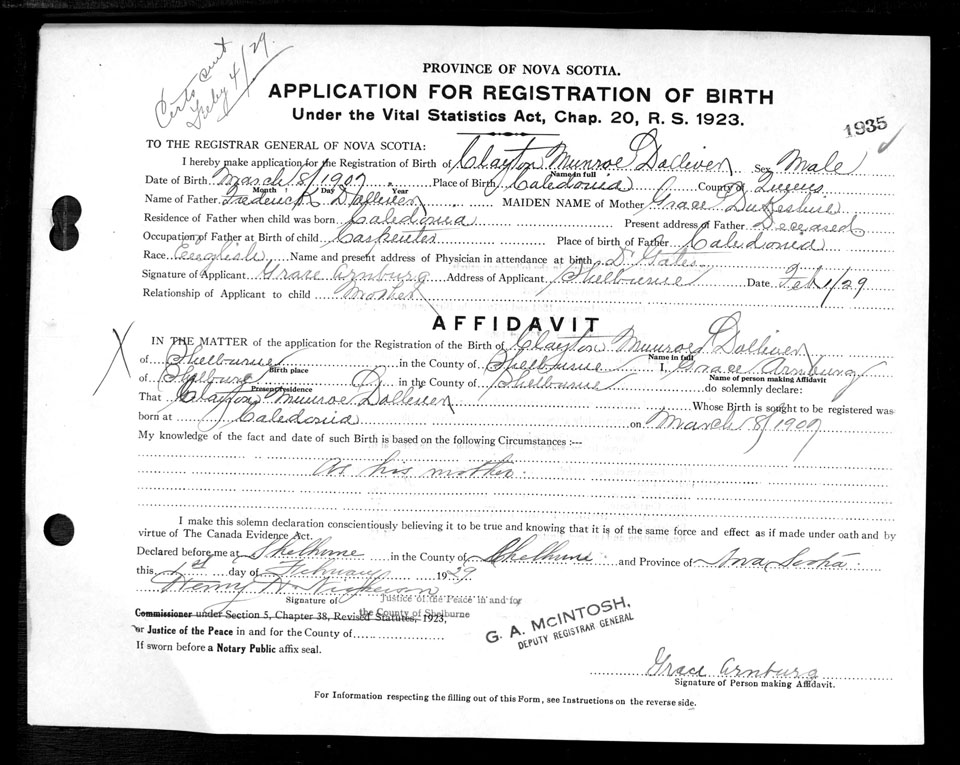 Certs sent
Feby 4/29.
PROVINCE OF NOVA SCOTIA.
APPLICATION FOR REGISTRATION OF BIRTH
Under the Vital Statistics Act, Chap. 20, R. S. 1923.
1935
TO THE REGISTRAR GENERAL OF NOVA SCOTIA:
I hereby make application for the Registration of Birth of Clayton Munroe Dolliver Sex Male
Name in full
Date of Birth March 8/1907 Place of Birth Caledonia County of Queens
Month Day Year
Name of Father Frederick Dolliver MAIDEN NAME of Mother Grace DuKeshire
Residence of Father when child was born Caledonia Present address of Father Deceased
Occupation of Father at Birth of child Carpenter Place of birth of Father Caledonia
Race English Name and present address of Physician in attendance at birth Dr Gates
Signature of Applicant Grace Arnburg Address of Applicant Shelburne Date Feb 1/29
Relationship of Applicant to child Mother
AFFIDAVIT
IN THE MATTER of the application for the Registration of the Birth of Clayton Munroe Dolliver
Name in full
of Shelburne in the County of Shelburne I, Grace Arnburg
Birth place Name of person making Affidavit
of Shelburne in the County of Shelburne do solemnly declare:
Present residence
That Clayton Munroe Dolliver Whose Birth is sought to be registered was
born at Caledonia on March 8/1907
My knowledge of the fact and date of such Birth is based on the following Circumstances :—
As his mother.
I make this solemn declaration conscientiously believing it to be true and knowing that it is of the same force and effect as if made under oath and by
virtue of The Canada Evidence Act.
Declared before me at Shelburne in the County of Shelburne and Province of Nova Scotia.
this 1st day of February 1929.
Henry H. Nickerson
Signature of Justice of the Peace in and for
the County of Shelburne
Commissioner under Section 5, Chapter 38, Revised Statutes, 1923,
or Justice of the Peace in and for the County of
If sworn before a Notary Public affix seal.
G. A. McINTOSH,
DEPUTY REGISTRAR GENERAL
Grace Arnburg
Signature of Person making Affidavit.
For Information respecting the filling out of this Form, see Instructions on the reverse side.